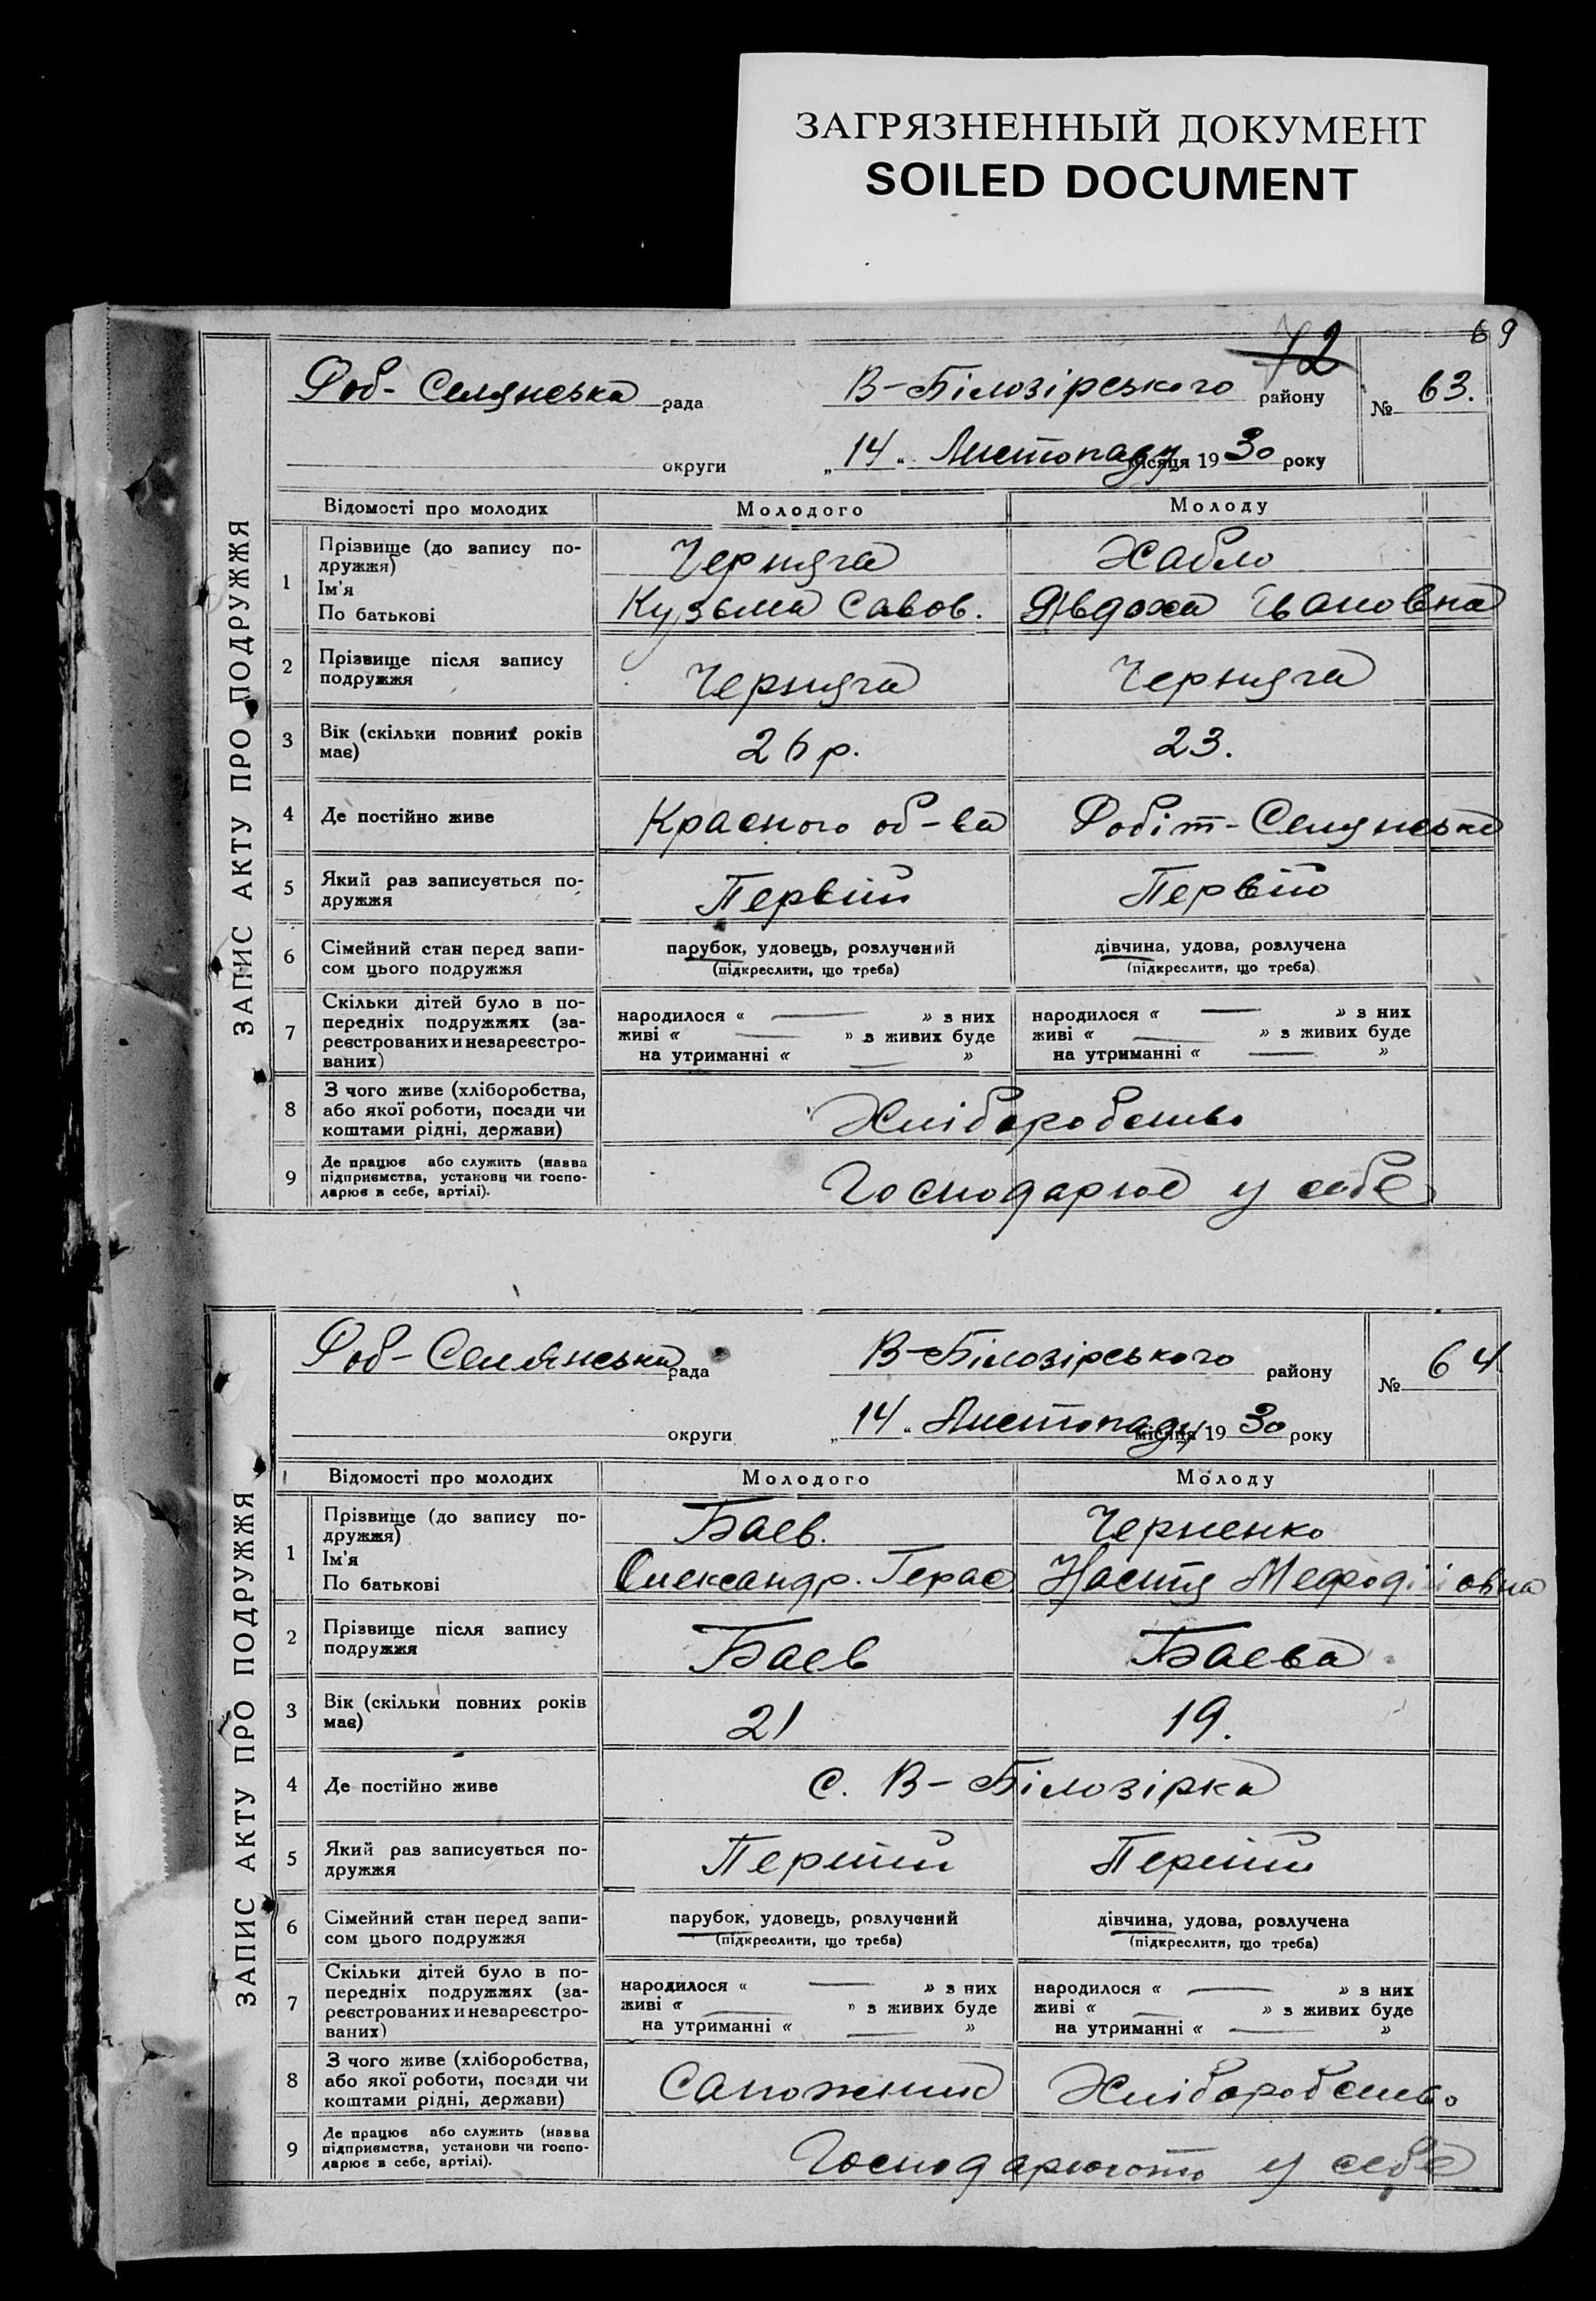 ЗАГРЯЗНЕННЫЙ ДОКУМЕНТ
SOILED DOCUMENT
69
72
ЗАПИС АКТУ ПРО ПОДРУЖЖЯ
Роб-Селянська рада В-Білозірського району № 63.
округи „14“ Листопаду місяця 1930 року
Відомості про молодих Молодого Молоду
1 Прізвище (до запису по-
дружжя) Черняга Хабло
Ім'я
По батькові Кузьма Савов. Явдоха Івановна
2 Прізвище після запису
подружжя Черняга Черняга
3 Вік (скільки повних років
має) 26 р. 23.
4 Де постійно живе Красного об-ва Робіт-Селянська
5 Який раз записується по-
дружжя Первий
6 Сімейний стан перед запи-
сом цього подружжя
парубок, удовець, розлучений дівчина, удова, розлучена
(підкреслити, що треба) (підкреслити, що треба)
7 Скільки дітей було в по-
передніх подружжях (за-
реєстрованих и незареєстро-
ваних)
народилося « — » з них народилося « — » з них
живі « — » з живих буде живі « — » з живих буде
на утриманні « — » на утриманні « — »
8 З чого живе (хліборобства,
або якої роботи, посади чи
коштами рідні, держави) Хліборобство
9 Де працює або служить (назва
підприємства, установи чи госпо-
дарює в себе, артілі). Господарює у себе
ЗАПИС АКТУ ПРО ПОДРУЖЖЯ
Роб-Селянська рада В-Білозірського району № 64
округи „14“ Листопаду місяця 1930 року
Відомості про молодих Молодого Молоду
1 Прізвище (до запису по-
дружжя) Баев. Черненко
Ім'я
По батькові Олександр. Герас Настя Мефодіівна
2 Прізвище після запису
подружжя Баев Баева
3 Вік (скільки повних років
має) 21 19.
4 Де постійно живе с. В-Білозірка
5 Який раз записується по-
дружжя Перший Перший
6 Сімейний стан перед запи-
сом цього подружжя
парубок, удовець, розлучений дівчина, удова, розлучена
(підкреслити, що треба) (підкреслити, що треба)
7 Скільки дітей було в по-
передніх подружжях (за-
реєстрованих и незареєстро-
ваних)
народилося « — » з них народилося « — » з них
живі « — » з живих буде живі « — » з живих буде
на утриманні « — » на утриманні « — »
8 З чого живе (хліборобства,
або якої роботи, посади чи
коштами рідні, держави) Хліборобство
9 Де працює або служить (назва
підприємства, установи чи госпо-
дарює в себе, артілі). Господарюють у себе